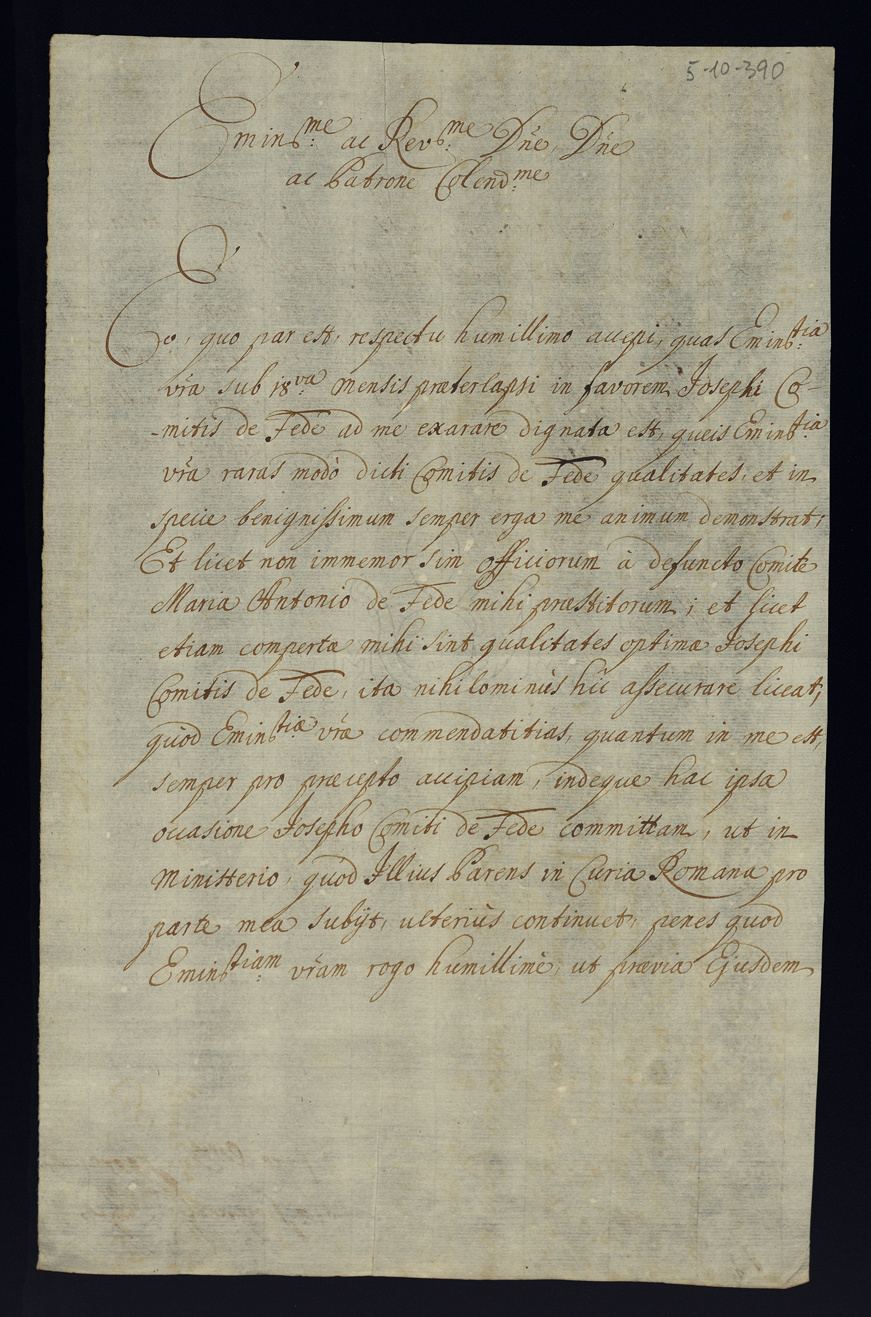 5-10-390
Emin̄s:me ac Rev̄s:me Dn̄e, Dn̄e
ac Patrone Colend:me
Eo, quo par est, respectu humillimo accepi, quas Emin̄s:tia
vr̄a sub 18va mensis præterlapsi in favorem Josephi Co-
-mitis de Fede ad me exarare dignata est, queis Emin̄s:tia
vr̄a raras modò dicti Comitis de Fede qualitates, et in
specie benignissimum semper erga me animum demonstrat;
Et licet non immemor sim officiorum à defuncto Comite
Maria Antonio de Fede mihi præstitorum; et licet
etiam compertæ mihi sint qualitates optimæ Josephi
Comitis de Fede, ita nihilominùs hic assecurare liceat,
quòd Emin̄s:tiæ vr̄æ commendatitias, quantum in me est,
semper pro præcepto accipiam, indeque hac ipsa
occasione Josepho Comiti de Fede committam, ut in
Ministerio, quod Illius Parens in Curia Romana pro
parte mea subijt, ulteriùs continuet, penes quod
Emin̄s:tiam vr̄am rogo humillimè, ut prævia Ejusdem